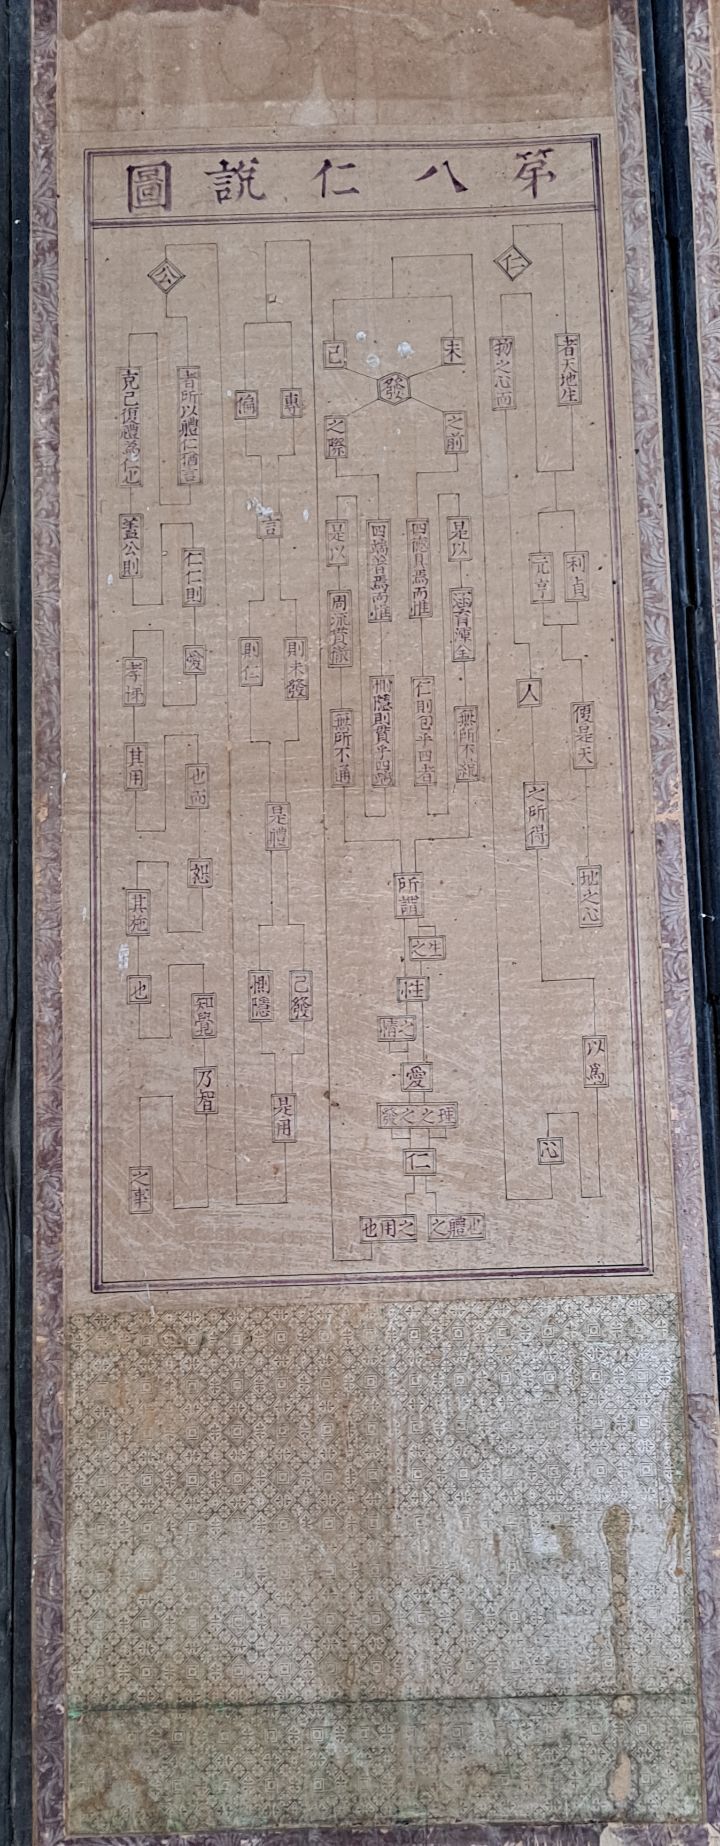 第八仁說圖
仁
者天地生
物之心而
利貞
元亨
人
便是天
之所得
地之心
以爲
心
未
已
發
之前
之際
是以
四德具焉而惟
四端著焉而惟
是以
涵育渾全
周流貫徹
仁則包乎四者
惻隱則貫乎四端
無所不統
無所不通
所謂
生之
性
之情
愛
理之
之發
仁
之體也
之用也
專
偏
言
則未發
則仁
是體
已發
惻隱
是用
公
者所以體仁猶言
克己復禮爲仁也
蓋公則
仁仁則
愛
孝悌
其用
也而
恕
其施
也
知覺
乃智
之事